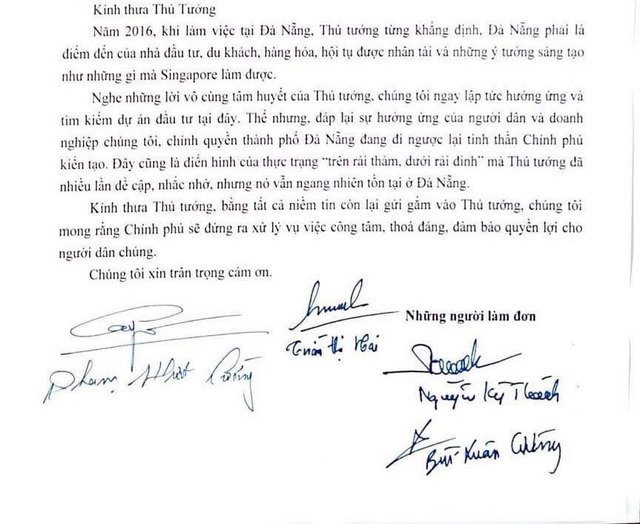 Kính thưa Thủ Tướng
Năm 2016, khi làm việc tại Đà Nẵng, Thủ tướng từng khẳng định, Đà Nẵng phải là
điểm đến của nhà đầu tư, du khách, hàng hóa, hội tụ được nhân tài và những ý tưởng sáng tạo
như những gì mà Singapore làm được.
Nghe những lời vô cùng tâm huyết của Thủ tướng, chúng tôi ngay lập tức hưởng ứng và
tìm kiếm dự án đầu tư tại đây. Thế nhưng, đáp lại sự hưởng ứng của người dân và doanh
nghiệp chúng tôi, chính quyền thành phố Đà Nẵng đang đi ngược lại tinh thần Chính phủ
kiến tạo. Đây cũng là điển hình của thực trạng “trên rải thảm, dưới rải đinh” mà Thủ tướng đã
nhiều lần đề cập, nhắc nhở, nhưng nó vẫn ngang nhiên tồn tại ở Đà Nẵng.
Kính thưa Thủ tướng, bằng tất cả niềm tin còn lại gửi gắm vào Thủ tướng, chúng tôi
mong rằng Chính phủ sẽ đứng ra xử lý vụ việc công tâm, thoả đáng, đảm bảo quyền lợi cho
người dân chúng.
Chúng tôi xin trân trọng cảm ơn.
Những người làm đơn
Trần Thị Hải
Phạm Nhật
Nguyễn Kỳ Thành
Bùi Xuân Cường